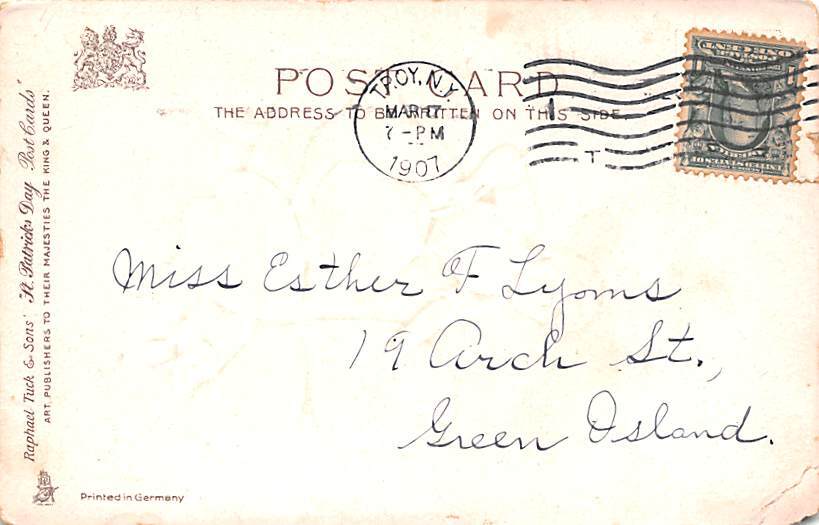 POST CARD
THE ADDRESS TO BE WRITTEN ON THIS SIDE
TROY, N.Y.
MAR 17
7-PM
1907
1
T
Miss Esther F Lyons
19 Arch St.,
Green Island.
Raphael Tuck & Sons' "St. Patrick's Day" Post Cards"
ART PUBLISHERS TO THEIR MAJESTIES THE KING & QUEEN.
Printed in Germany